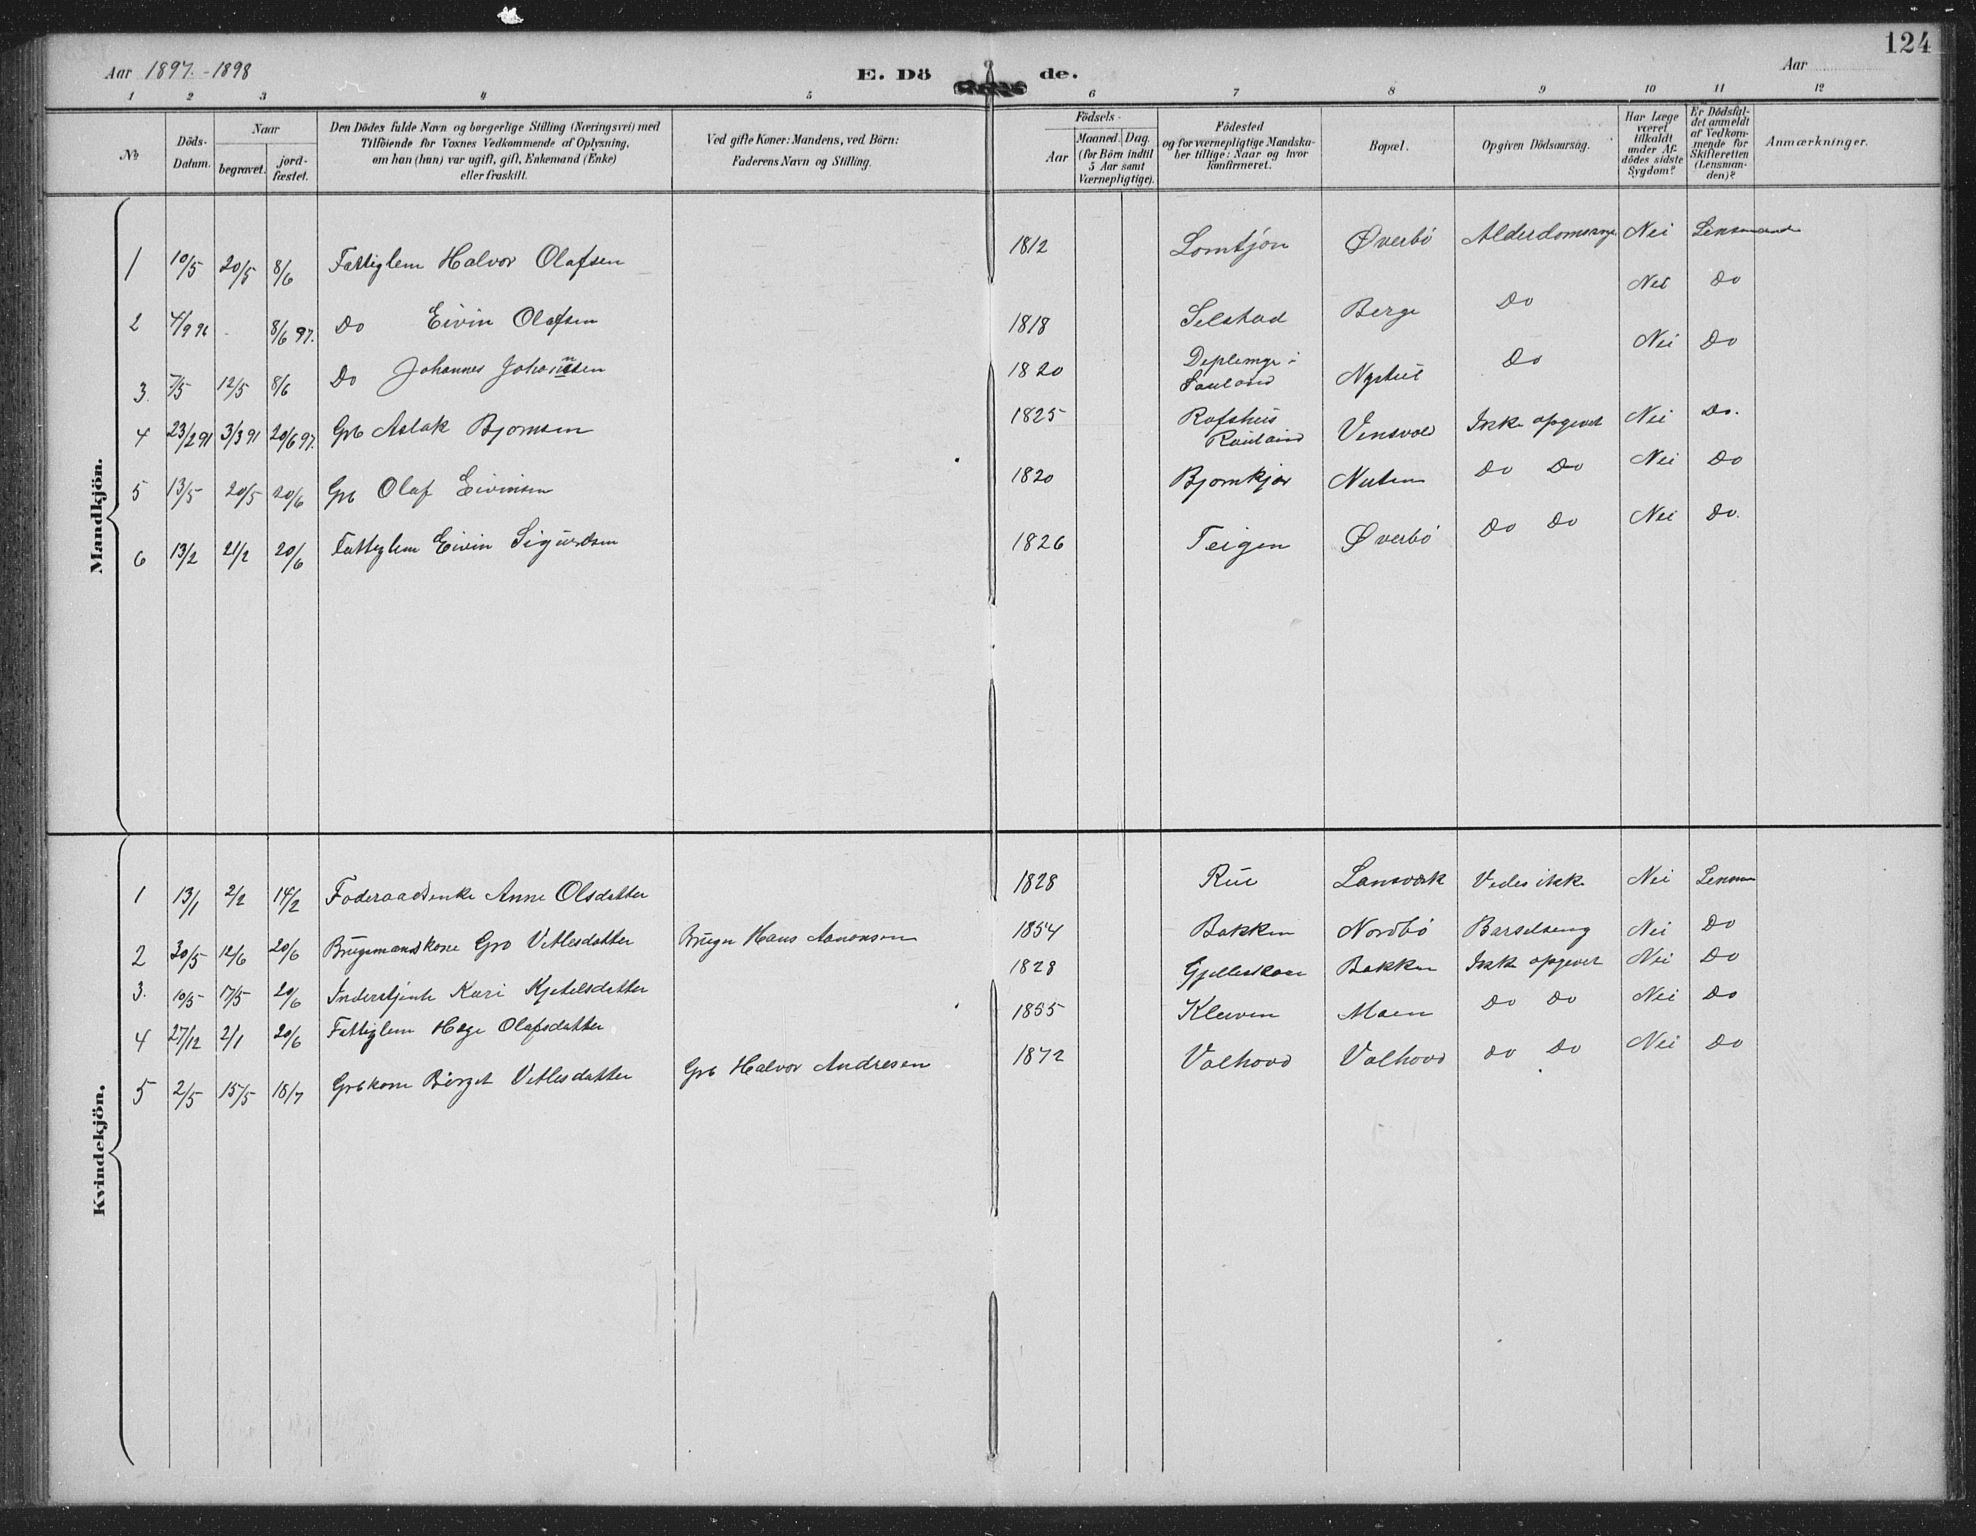 124
Aar 1897.-1898 E. Dö de. Aar
1 2 3 4 5 6 7 8 9 10 11 12
No
Döds-Datum.
Naar
begravet.
jord-fæstet.
Den Dödes fulde Navn og borgerlige Stilling (Næringsvei) med
Tilföiende for Voxnes Vedkommende af Oplysning,
om han (hun) var ugift, gift, Enkemand (Enke)
eller fraskilt.
Ved gifte Koner: Mandens, ved Börn:
Faderens Navn og Stilling.
Födsels-
Aar
Maaned. Dag.
(for Börn indtil
5 Aar samt
Værnepligtige).
Födested
og for værnepligtige Mandska-
ber tillige: Naar og hvor
konfirmeret.
Bopæl.
Opgiven Dödsaarsag.
Har Læge
været
tilkaldt
under Af-
dödes sidste
Sygdom?
Er Dödsfal-
det anmeldt
af Vedkom-
mende for
Skifteretten
(Lensman-
den)?
Anmærkninger.
Mandkjön.
1 10/5 20/5 8/6 Fattiglem Halvor Olafsen 1812 Lomtjøn Øverbö Nei
2 8/6 97. Do Eivin Olafsen 1818 Selstad Berge Do Nei Do
3. 7/5 12/5 8/6 Do Johannes 1820 Do Nei Do
4 23/2 91 3/3 91 20/6 97. Grb Aslak Bjørnsen 1825 Rofshus Rauland Ikke opgivet Nei Do.
5 13/5 20/5 20/6 Grb Olaf Eivinsen 1820 Bjørnkjær Do Do Nei Do
6 13/2 21/2 20/6 Fattiglem Eivin Sigurdsen 1826 Teigen Øverbö Do Do Nei Do.
Kvindekjön.
1 13/1 2/2 14/2 Føderaadsenke Anne Olsdatter 1828 Rue Vedes ikke Nei
2 30/5 12/6 20/6 Brugsmandskone Gro Vetlesdatter Bruger Hans Aanonsen 1854 Bakken Nordbö Barselseng Nei Do
3. 10/5 17/5 20/6 Kari Kjetelsdatter 1828 Bakken Ikke opgivet Nei Do
4 27/12 2/1 20/6 Fattiglem Hege Olafsdatter 1855 Kleiven Moen Do Do Nei Do
5 2/5 15/5 18/7 Grbkone Birget Vetlesdatter Grb Halvor Andresen 1872 Valhovd Valhovd Do Do Nei Do